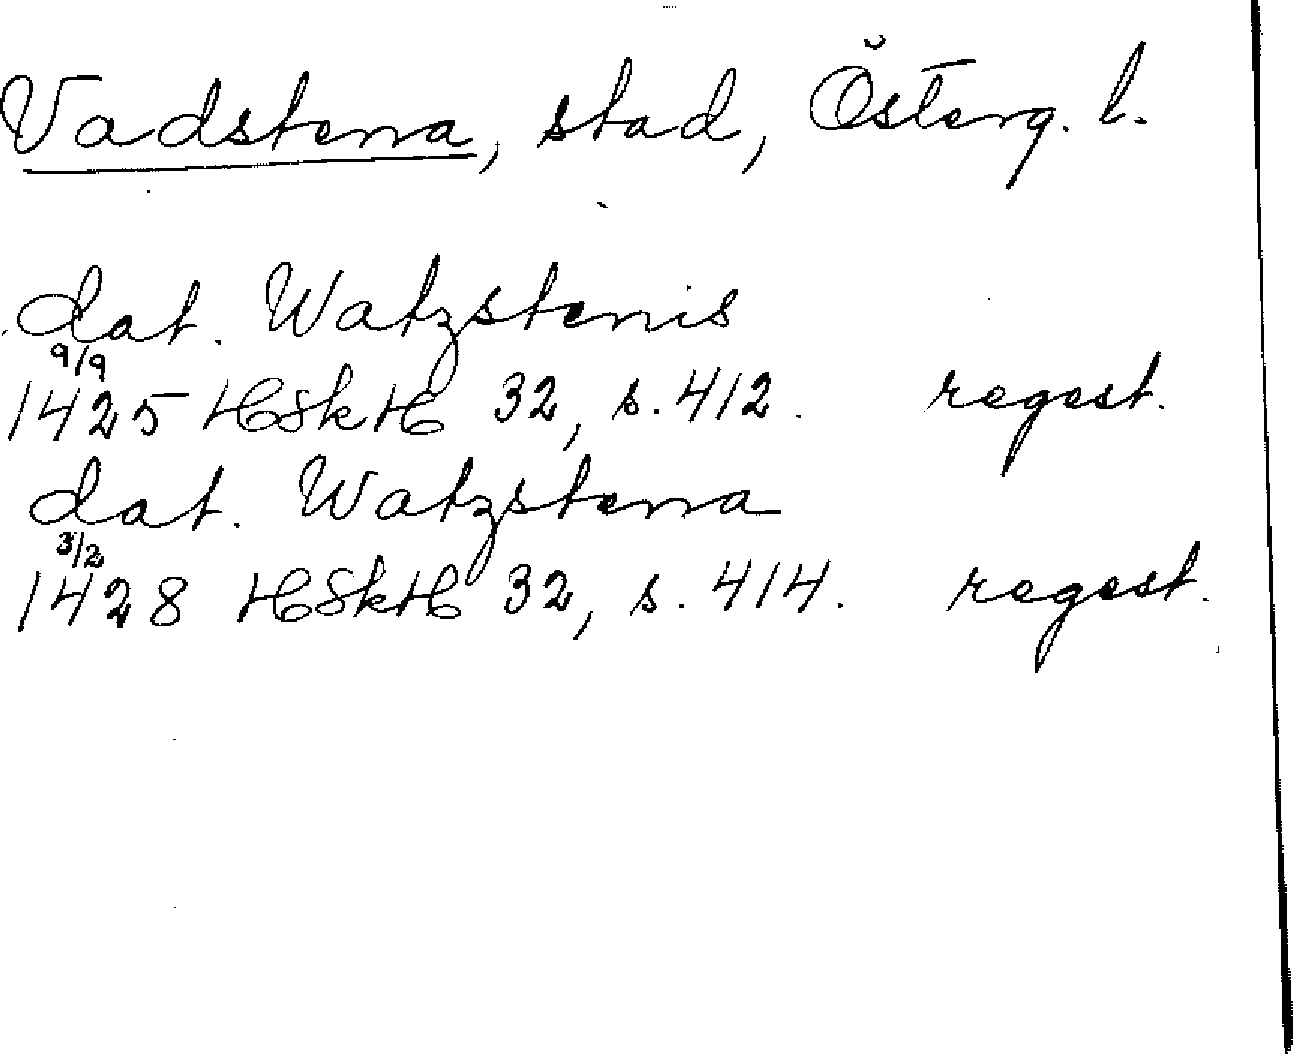 Vadstena, stad, Österg. l.
dat. Watzstenis
9/9
1425 HSkH 32, s. 412. regest.
dat. Watzstena
3/2
1428 HSkH 32, s. 414. regest.